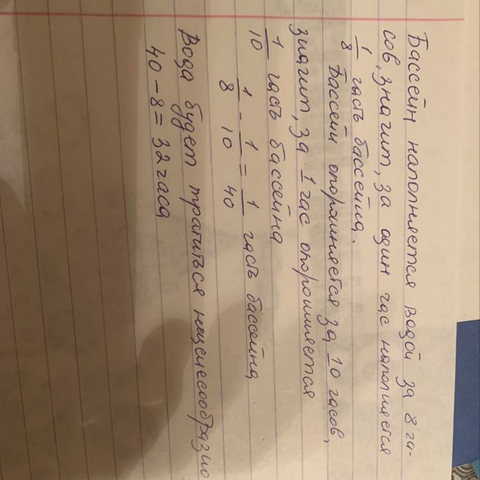 Бассейн наполняется водой за 8 ча-
сов, значит, за один час наполняется
1/8 часть бассейна.
Бассейн опорошняется за 10 часов,
значит, за 1 час опорошняется
1/10 часть бассейна
1/8 - 1/10 = 1/40 часть бассейна
Вода будет тратиться нецелесообразно
40 - 8 = 32 часа